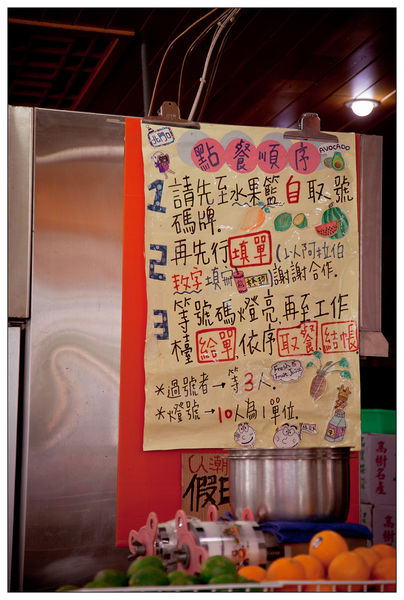 點餐順序
AVOCADO
1 請先至水果籃自取號
碼牌.
2 再先行填單(以阿拉伯
數字填寫號碼)謝謝合作.
3 等號碼燈亮再至工作
檯給單依序取餐.結帳
Fresh Fruit Juice
*過號者→等3人.
*燈號→10人為1單位.
人潮
假日
高樹名產